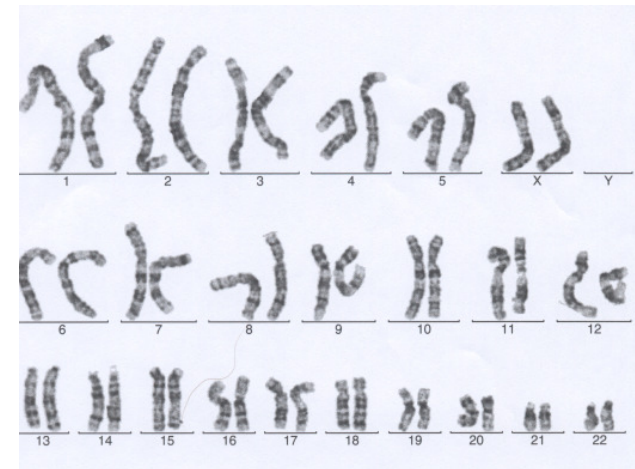 1 2 3 4 5 X Y
6 7 8 9 10 11 12
13 14 15 16 17 18 19 20 21 22